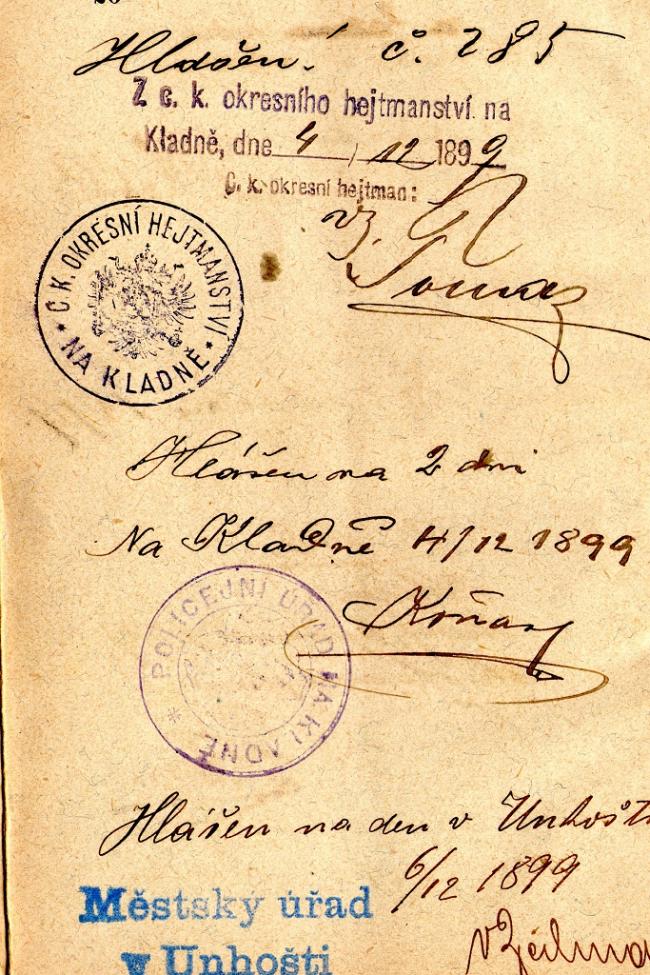 Hlášen! č. 285
Z c. k. okresního hejtmanství na
Kladně, dne 4/12 1899
C. k. okresní hejtman:
C. K. OKRESNÍ HEJTMANSTVÍ * NA KLADNĚ *
Hlášen na 2 dni
Na Kladně 4/12 1899
POLICEJNÍ ÚŘAD NA KLADNĚ *
Hlášen na den v Unhošti
6/12 1899
Městský úřad
v Unhošti